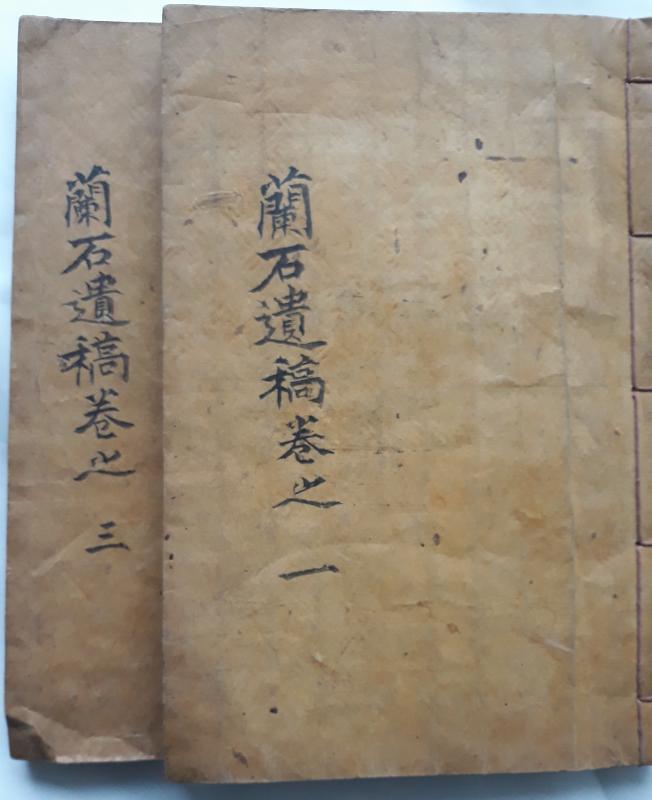 蘭石遺稿卷之一
蘭石遺稿卷之三